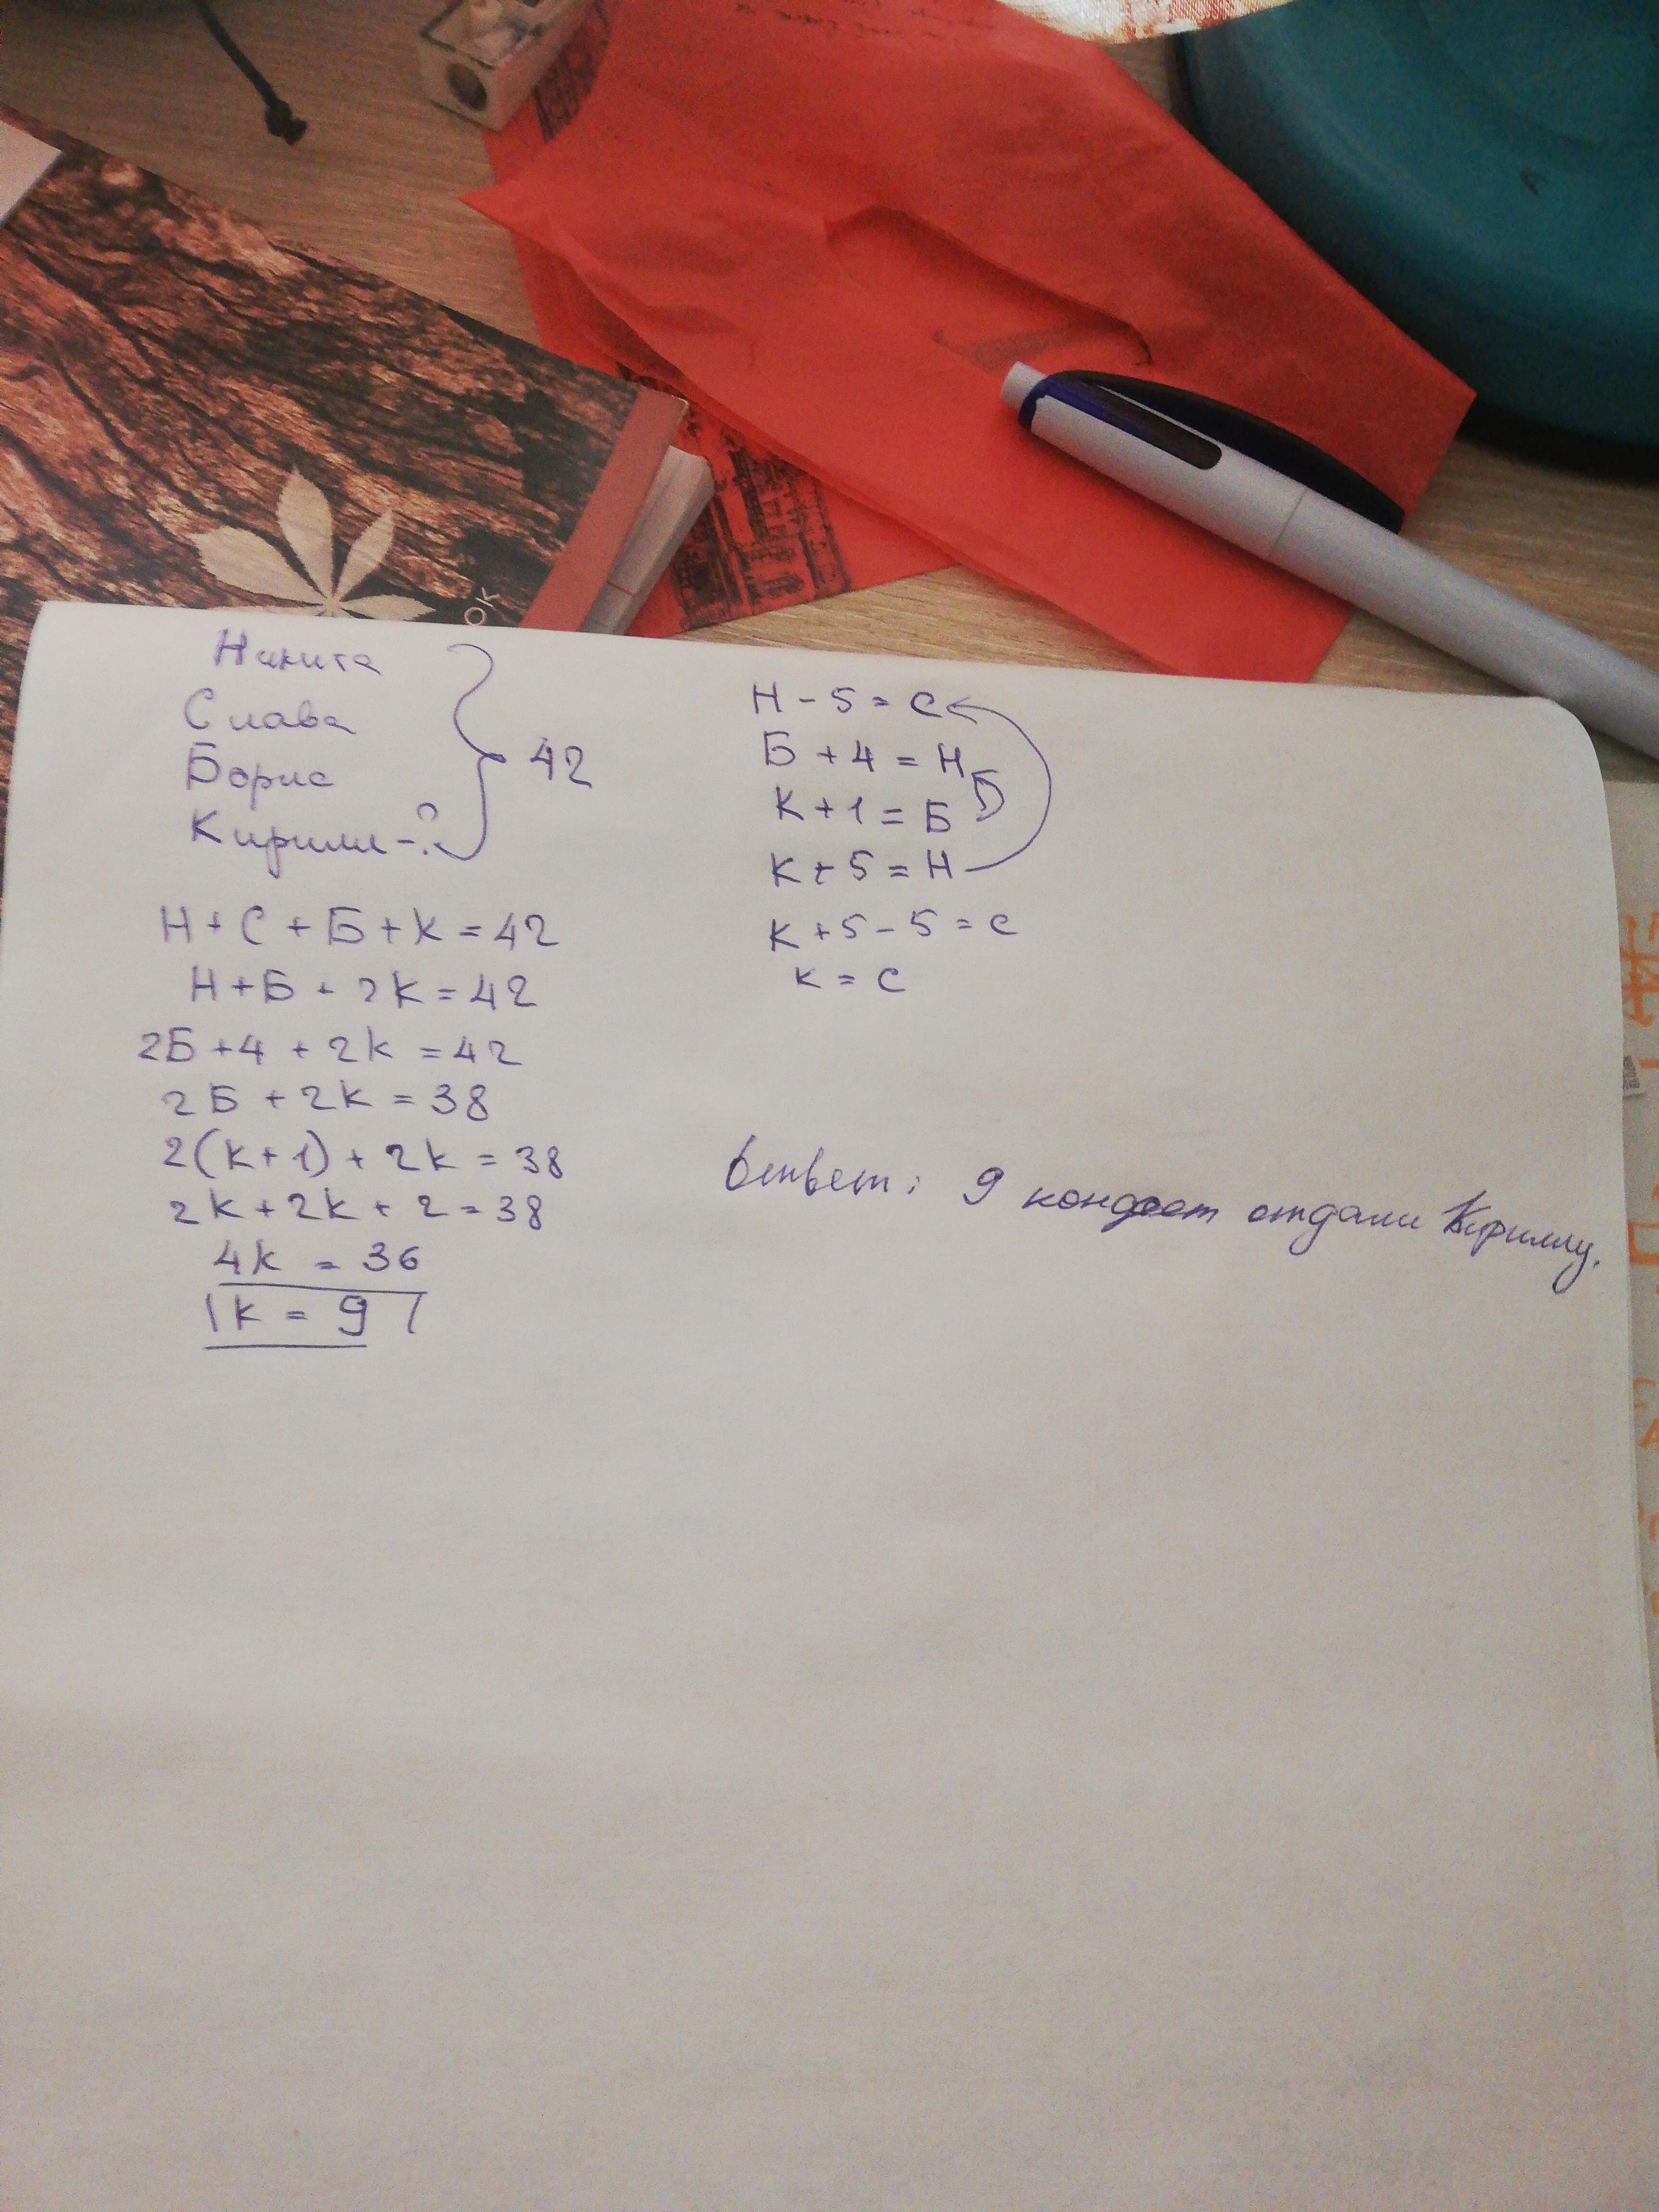 Никита
Слава
Борис
Кирилл - ?
42
Н + С + Б + К = 42
Н + Б + 2К = 42
2Б + 4 + 2К = 42
2Б + 2К = 38
2(К + 1) + 2К = 38
2К + 2К + 2 = 38
4К = 36
К = 9
Н - 5 = С
Б + 4 = Н
К + 1 = Б
К + 5 = Н
К + 5 - 5 = С
К = С
Ответ: 9 конфет отдали Кириллу.
ОК